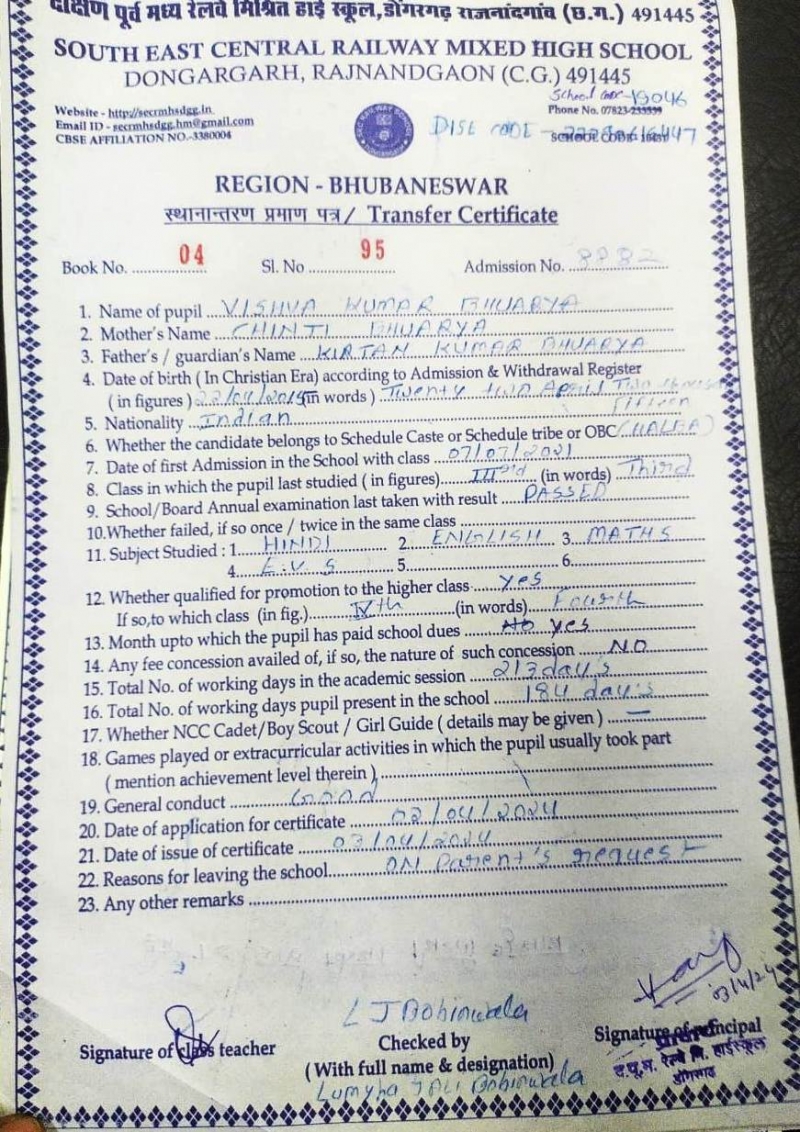 दक्षिण पूर्व मध्य रेलवे मिश्रित हाई स्कूल,डोंगरगढ़ राजनांदगांव (छ.ग.) 491445
SOUTH EAST CENTRAL RAILWAY MIXED HIGH SCHOOL
DONGARGARH, RAJNANDGAON (C.G.) 491445
School code - 19046
Website - http://secrmhsdgg.in
Phone No. 07823-
Email ID - secrmhsdgg.hm@gmail.com
DISE CODE -
CBSE AFFILIATION NO.-3380004
SCHOOL CODE
REGION - BHUBANESWAR
स्थानान्तरण प्रमाण पत्र / Transfer Certificate
Book No. 04 Sl. No 95 Admission No. 8982
1. Name of pupil VISHVA KUMAR BHUARYA
2. Mother's Name CHINTI BHUARYA
3. Father's / guardian's Name KIRTAN KUMAR BHUARYA
4. Date of birth ( In Christian Era) according to Admission & Withdrawal Register
( in figures ) 22/04/2015 (in words ) Twenty two April Two thousand
Fifteen
5. Nationality Indian
6. Whether the candidate belongs to Schedule Caste or Schedule tribe or OBC (HALBA)
7. Date of first Admission in the School with class 07/07/2021
8. Class in which the pupil last studied ( in figures) IIIrd (in words) Third
9. School/Board Annual examination last taken with result PASSED
10.Whether failed, if so once / twice in the same class
11. Subject Studied : 1 HINDI 2 ENGLISH 3 MATHS
4 E.V.S 5 6
12. Whether qualified for promotion to the higher class yes
If so,to which class (in fig.) IVth (in words) Fourth
13. Month upto which the pupil has paid school dues yes
14. Any fee concession availed of, if so, the nature of such concession NO
15. Total No. of working days in the academic session 213 day's
16. Total No. of working days pupil present in the school 184 day's
17. Whether NCC Cadet/Boy Scout / Girl Guide ( details may be given ) —
18. Games played or extracurricular activities in which the pupil usually took part
( mention achievement level therein )
19. General conduct Good
20. Date of application for certificate 02/04/2024
21. Date of issue of certificate 03/04/2024
22. Reasons for leaving the school ON Parent's request
23. Any other remarks
03/4/24
Signature of class teacher
Checked by
Signature of principal
(With full name & designation)
द.पू.म. रेल्वे मि. हाईस्कूल
डोंगरगढ़